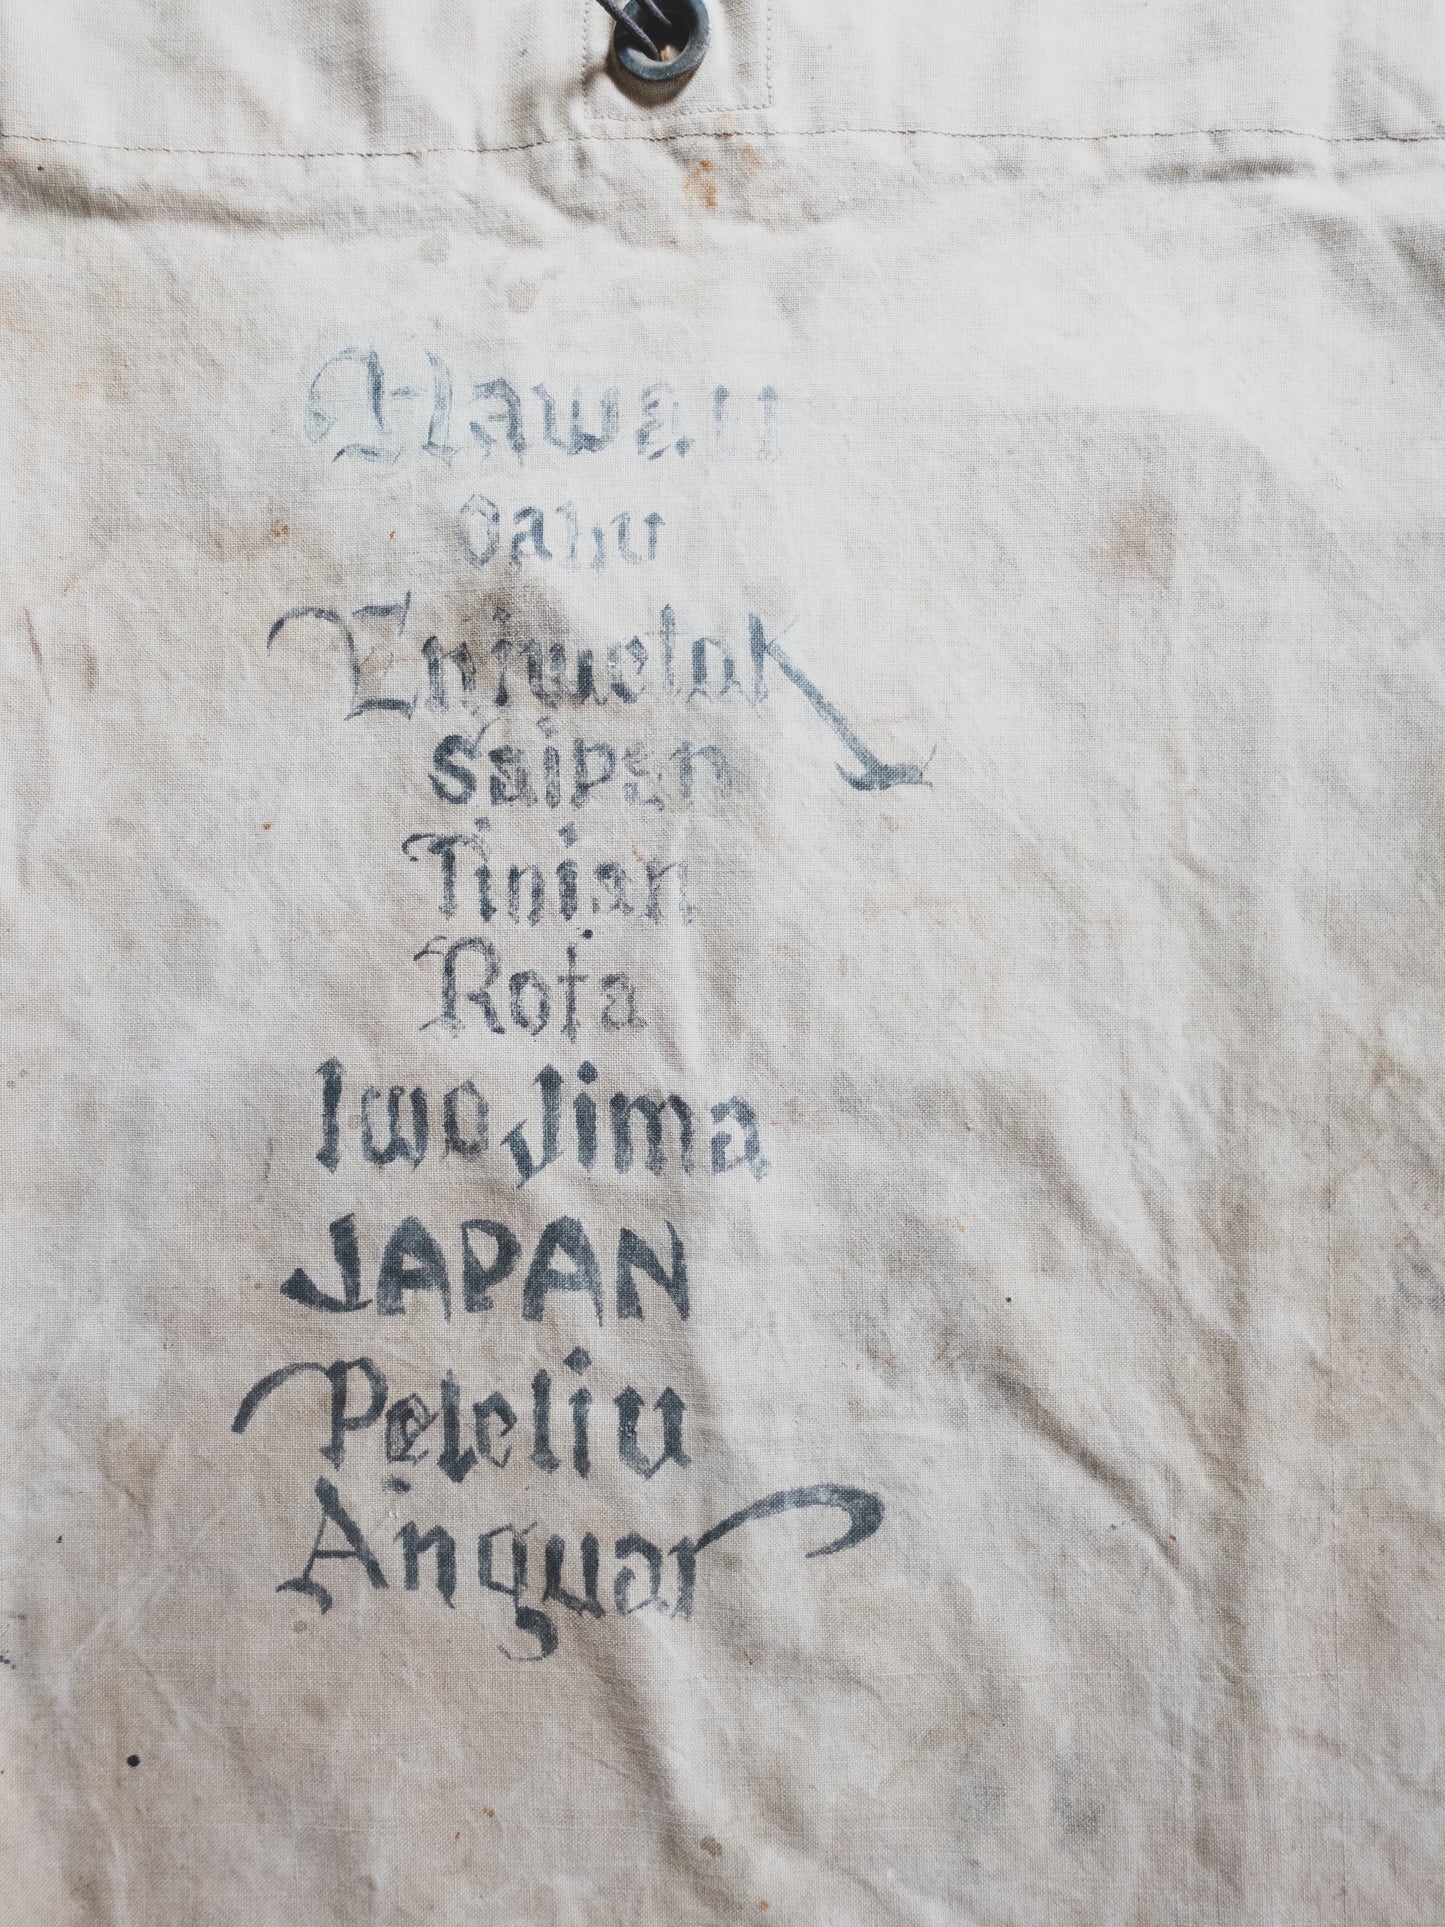 Hawaii
oahu
Eniwetok
Saipan
Tinian
Rota
Iwo Jima
JAPAN
Peleliu
Anguar